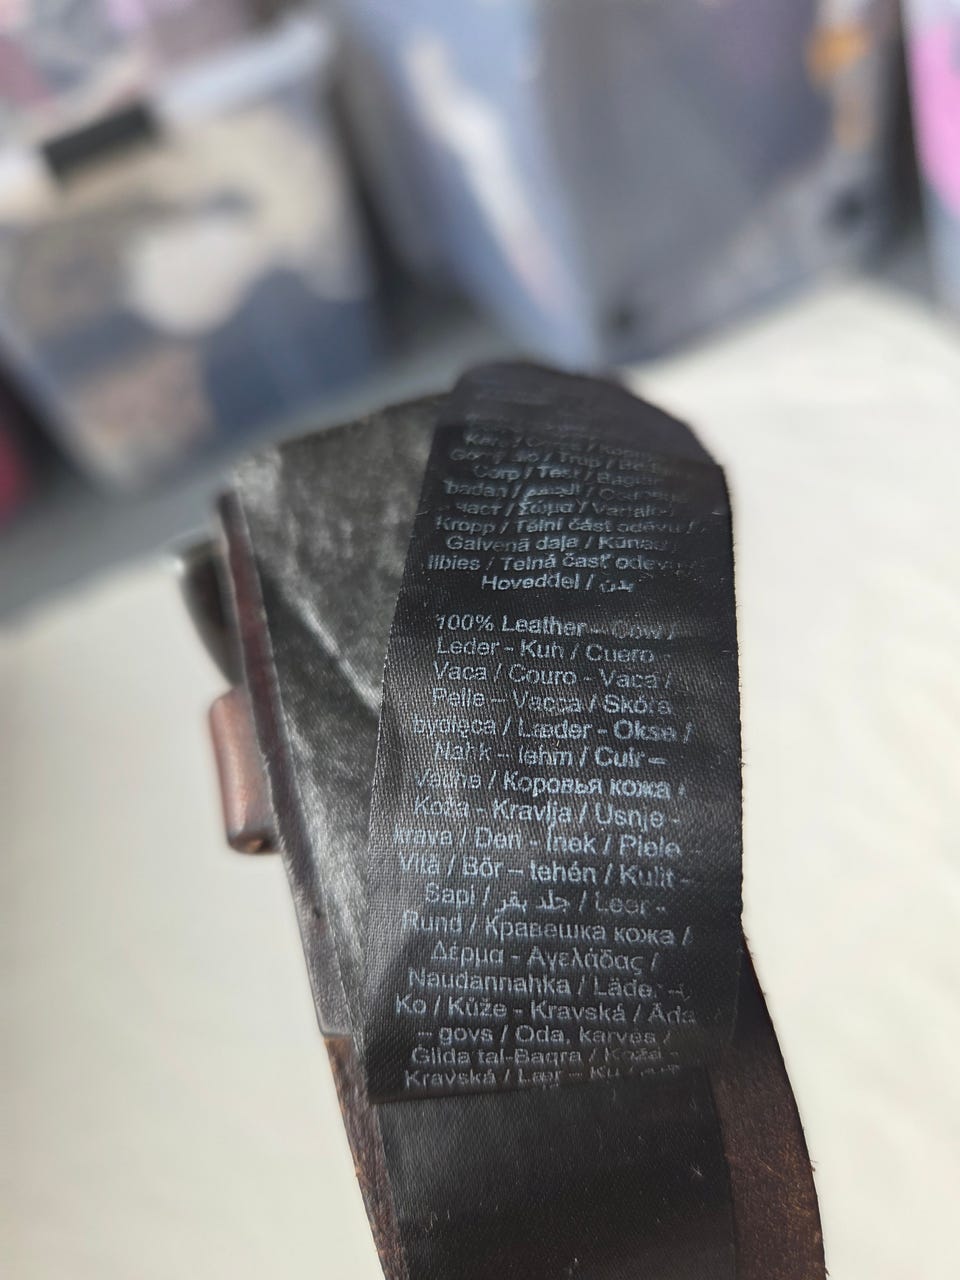 Corp /
badan /
част / Σώμα /
Kropp / Telní část oděvu /
Galvenā daļa / Kūnas /
libies / Telná časť odevu /
Hoveddel / بدن
100% Leather – Cow /
Leder - Kuh / Cuero -
Vaca / Couro - Vaca /
Pelle – Vacca / Skóra
bydlęca / Læder - Okse /
Nahk – lehm / Cuir –
Vache / Коровья кожа /
Koža - Kravlja / Usnje -
krava / Deri - İnek / Piele –
Vită / Bőr – tehén / Kulit –
Sapi / جلد بقر / Leer -
Rund / Кравешка кожа /
Δέρμα - Αγελάδας /
Naudannahka / Läder –
Ko / Kůže - Kravská / Āda
– govs / Oda, karvės /
Ġilda tal-Baqra / Koža -
Kravská / Lær – Ku /